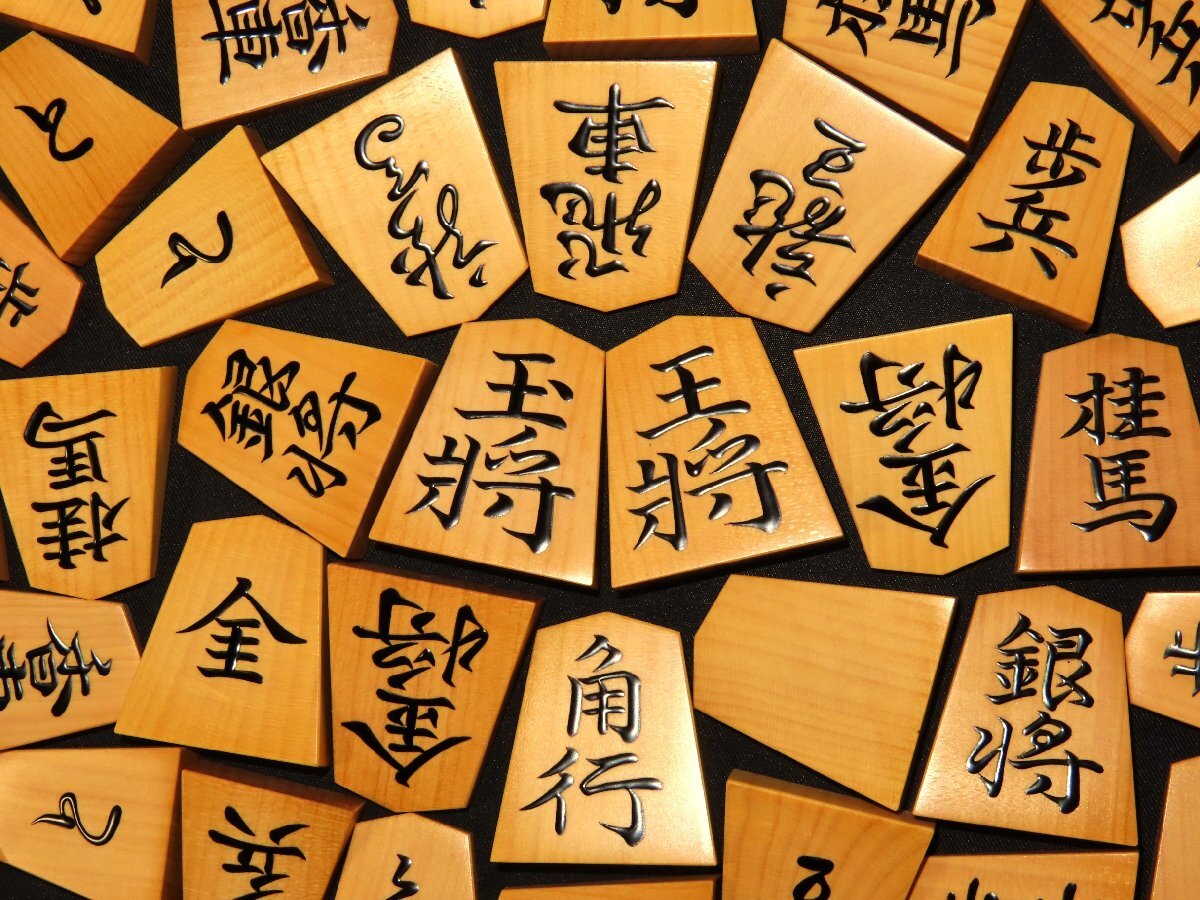 香車
と
と
龍馬
飛車
龍王
歩兵
桂馬
銀将
玉将
王将
金将
桂馬
香車
金
金将
角行
銀将
と